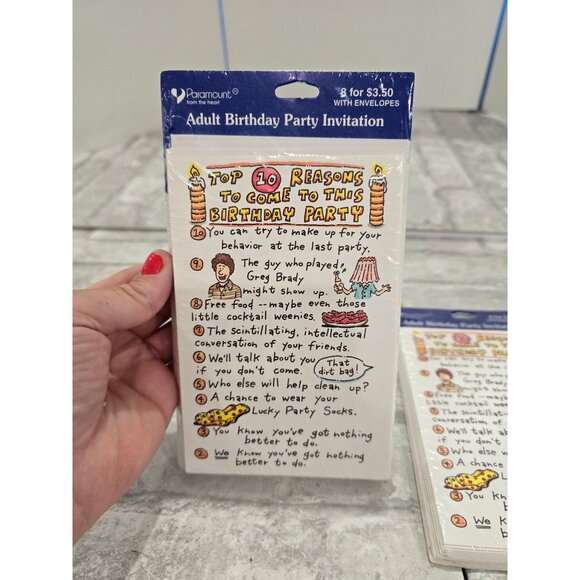 Paramount
from the heart
8 for $3.50
WITH ENVELOPES
Adult Birthday Party Invitation
TOP 10 REASONS
TO COME TO THIS
BIRTHDAY PARTY
10. You can try to make up for your
behavior at the last party.
9. The guy who played
Greg Brady
might show up.
8. Free food -- maybe even those
little cocktail weenies.
7. The scintillating, intellectual
conversation of your friends.
6. We'll talk about you
if you don't come.
That
dirt bag!
5. Who else will help clean up?
4. A chance to wear your
Lucky Party Socks.
3. You know you've got nothing
better to do.
2. We know you've got nothing
better to do.
Adult Birthday Party Invitation
TOP 10 REASONS
BIRTHDAY PARTY
behavior at the
The guy who
Greg Brady
might show
Free food -- maybe
little cocktail
The scintillating
conversation of
We'll talk about
if you don't
Who else w
A chance
L
You kn
2. We k